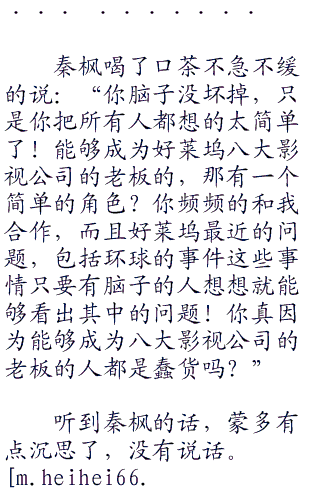 ... ... ... ...
秦枫喝了口茶不急不缓
的说：“你脑子没坏掉，只
是你把所有人都想的太简单
了！能够成为好菜坞八大影
视公司的老板的，那有一个
简单的角色？你频频的和我
合作，而且好菜坞最近的问
题，包括环球的事件这些事
情只要有脑子的人想想就能
够看出其中的问题！你真因
为能够成为八大影视公司的
老板的人都是蠢货吗？”
听到秦枫的话，蒙多有
点沉思了，没有说话。
[m.heihei66.